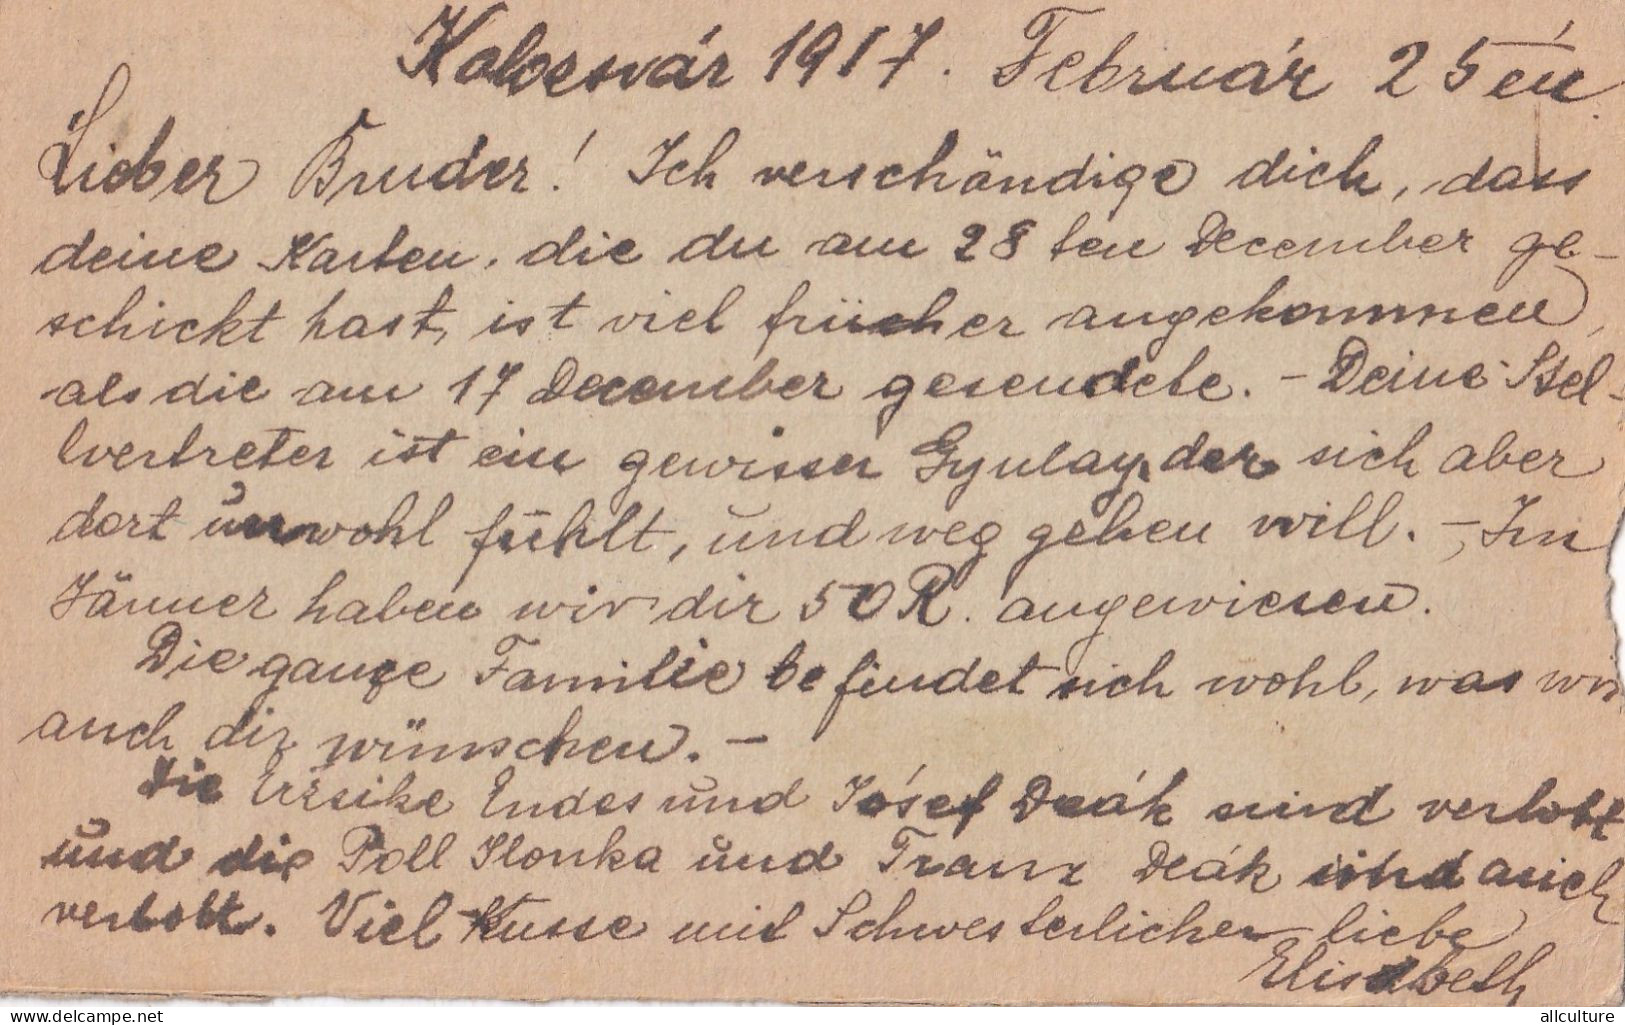 Kolozsvár 1917. Február 25 én
Lieber Bruder! Ich verschändige dich, dass
deine Karten, die du am 28 ten December ge-
schickt hast, ist viel früeher angekommen,
als die am 17 December gesendete. - Deine Stel-
lvertreter ist ein gewisser Gyulay, der sich aber
dort unwohl fühlt, und weg gehen will. - Im
Jänner haben wir dir 50 R. angewiesen.
Die ganze Familie befindet sich wohl, was wir
auch dir wünschen. -
Die Erzsike Endes und Jósef Deák sind verlobt
und die Poll Ilonka und Franz Deák sind auch
verlobt. Viel Kusse mit Schwesterlicher liebe
Elisabeth
allculture